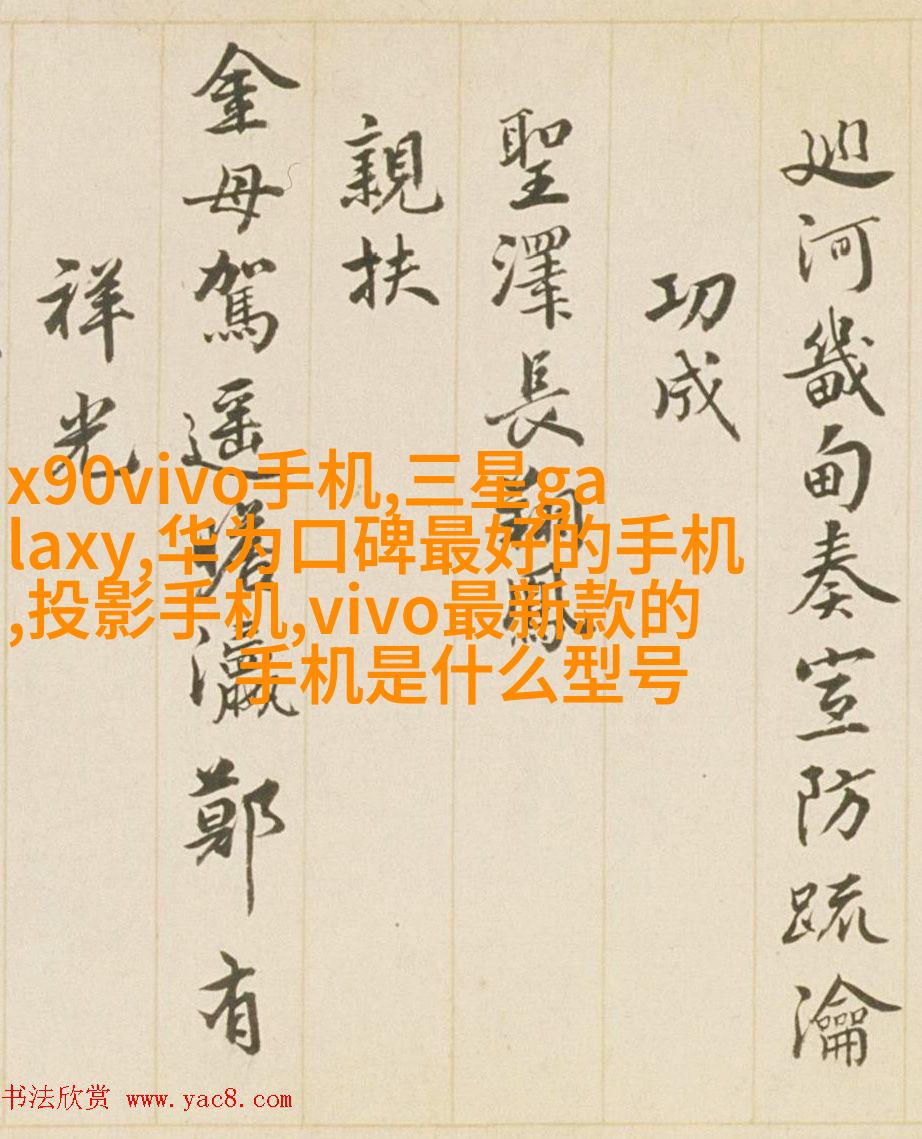 廵河畿甸奏宣防疏瀹
功成
聖澤長
親扶
金母駕遥瀛鄭有
祥光
x90vivo手机,三星ga
laxy,华为口碑最好的手机
,投影手机,vivo最新款的
手机是什么型号
书法欣赏 www.yac8.com